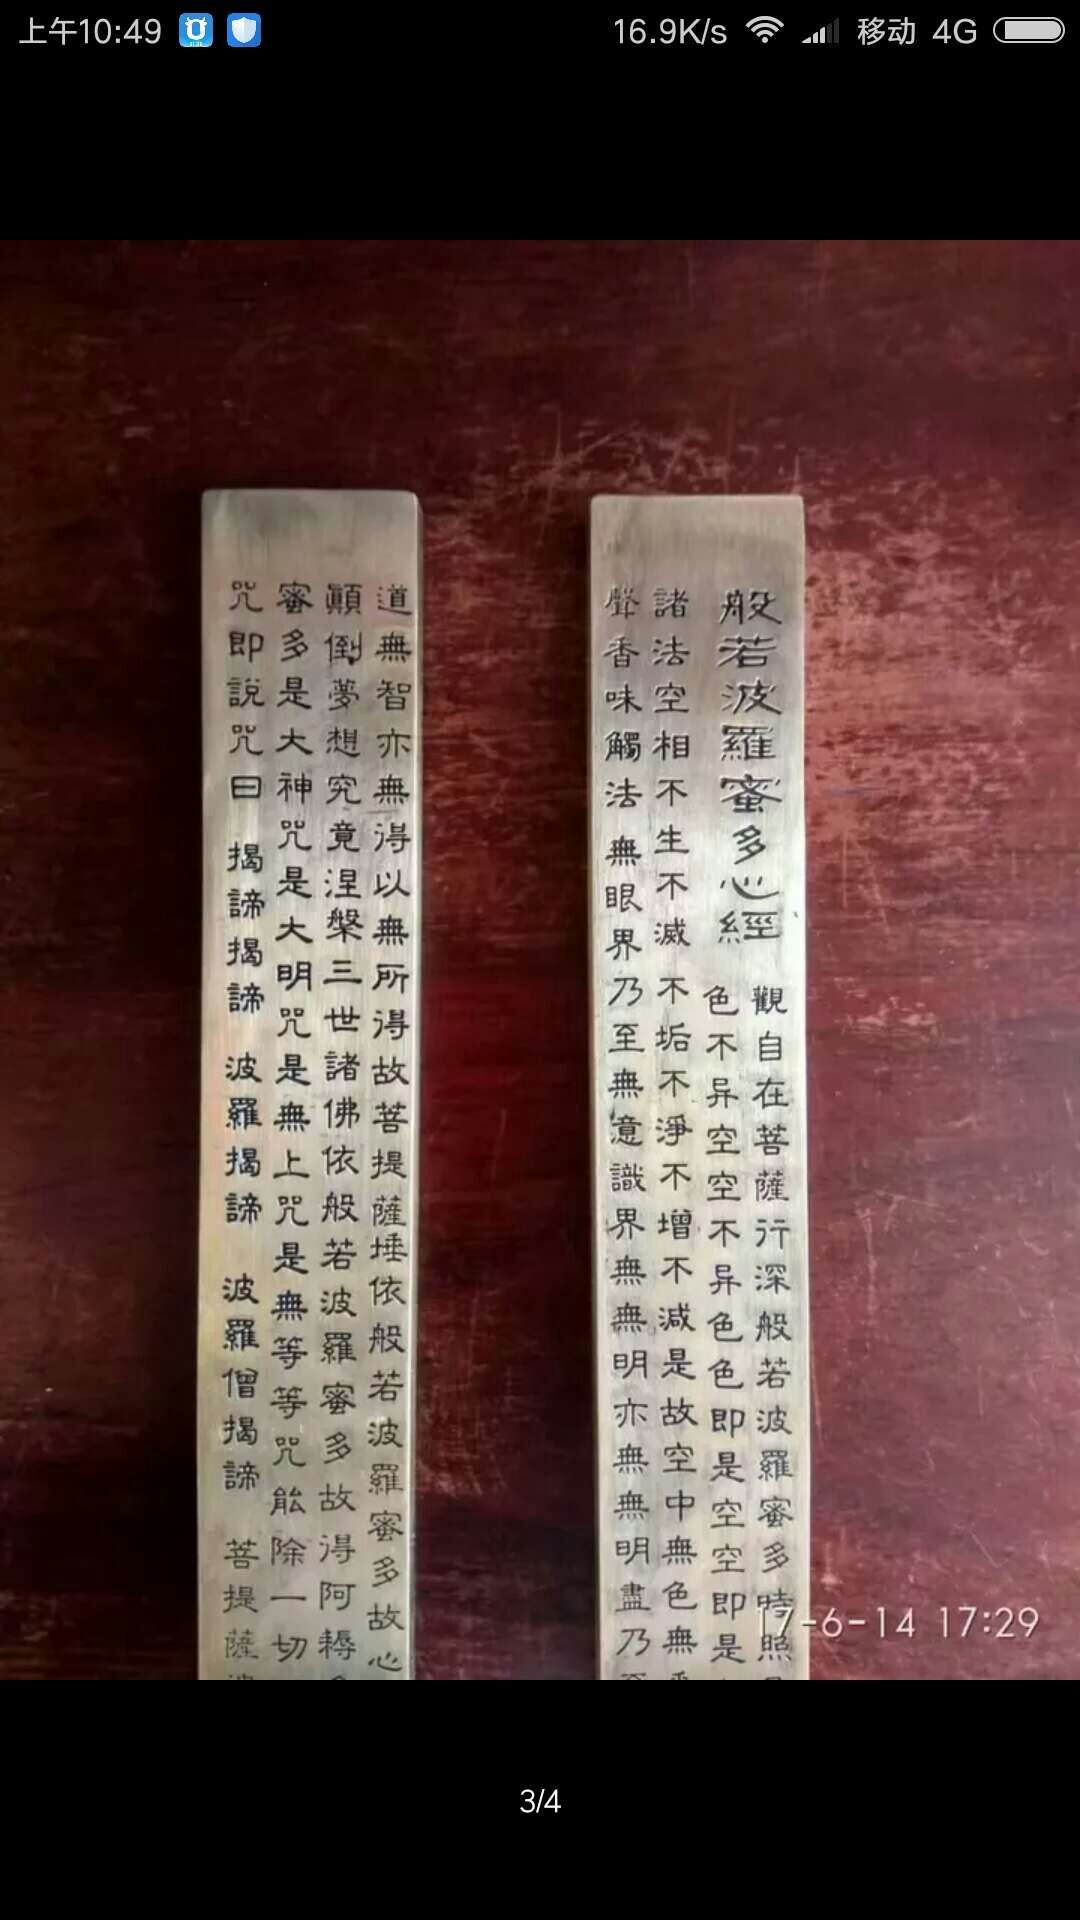 上午10:49
16.9K/s 移动 4G
般若波羅蜜多心經
觀自在菩薩行深般若波羅蜜多時照
色不异空空不异色色即是空空即是
諸法空相不生不滅 不垢不淨不增不減是故空中無色無
聲香味觸法 無眼界乃至無意識界無無明亦無無明盡乃
道無智亦無得以無所得故菩提薩埵依般若波羅蜜多故心
顛倒夢想究竟涅槃三世諸佛依般若波羅蜜多故得阿耨
蜜多是大神咒是大明咒是無上咒是無等等咒能除一切
咒即說咒曰 揭諦揭諦 波羅揭諦 波羅僧揭諦 菩提薩
17-6-14 17:29
3/4